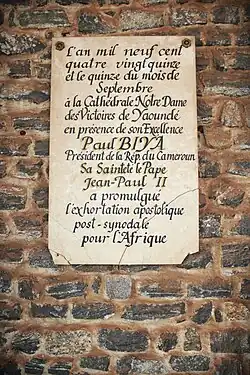 L'an mil neuf cent
quatre vingt quinze
et le quinze du mois de
Septembre
à la Cathédrale Notre Dame
des Victoires de Yaoundé
en présence de son Excellence
Paul BIYA
Président de la Rép. du Cameroun
Sa Sainteté le Pape
Jean-Paul II
a promulgué
l'exhortation apostolique
post-synodale
pour l'Afrique